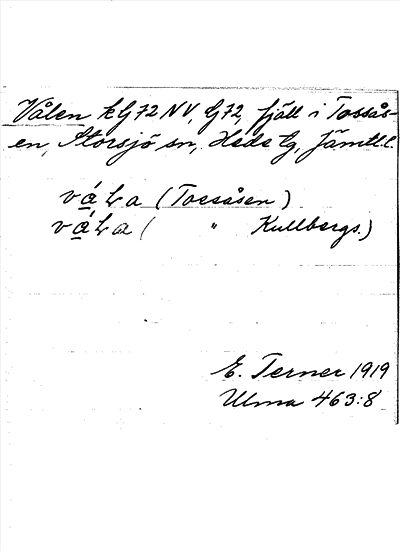 Vålen kG72NV, G72, fjäll i Tossås-
en, Storsjö sn, Heds tg, Jämtl.l.
vá̱La (Tossåsen)
vá̱La ( " Kullbergs.)
E. Terner 1919
Ulma 463:8